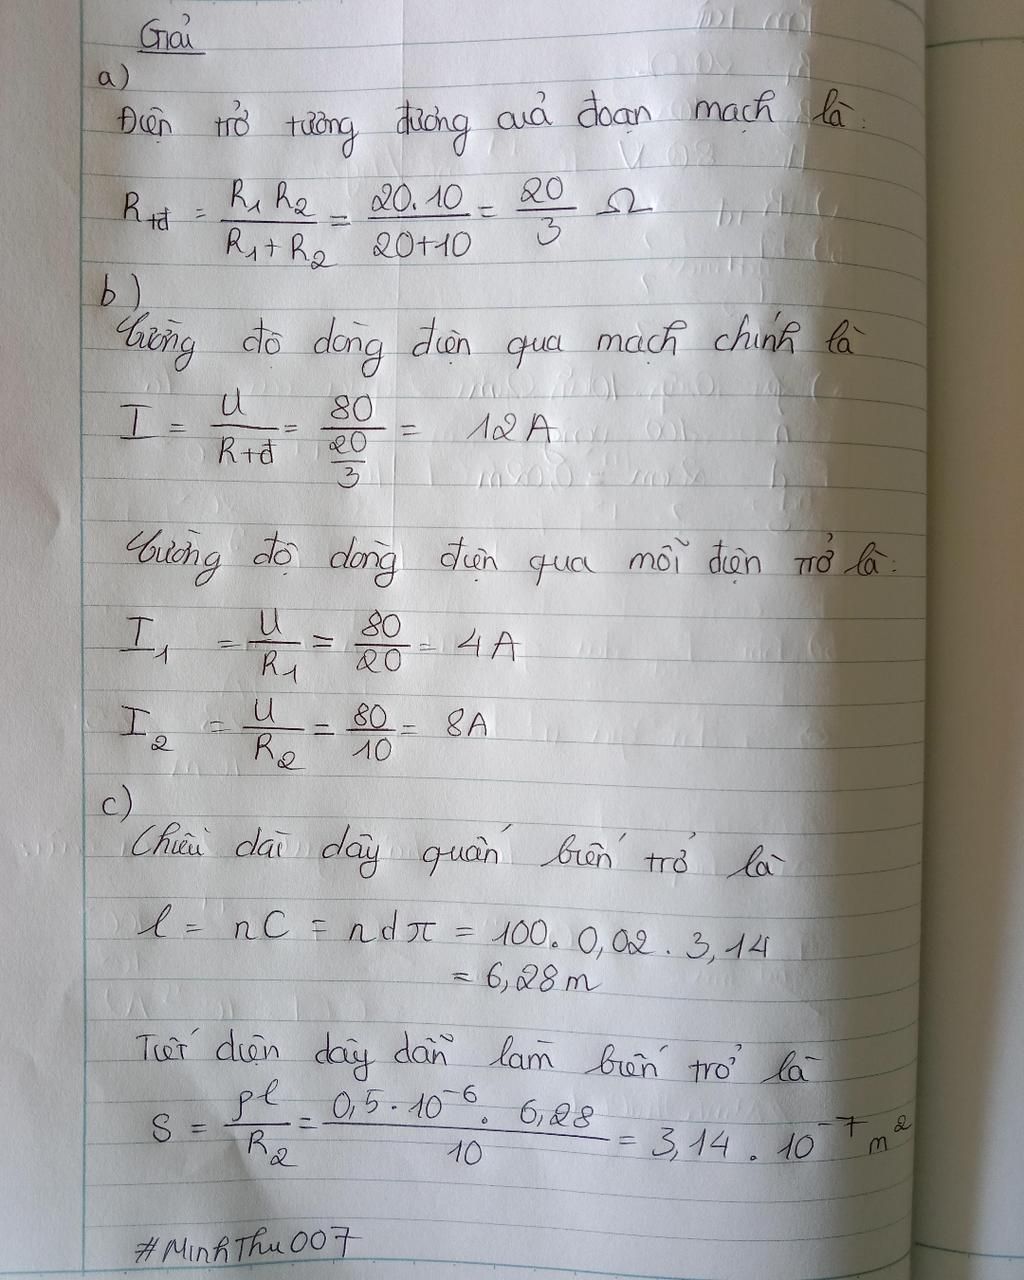 Giải
a)
Điện trở tương đương của đoạn mạch là:
Rtđ = R1 R2 / R1 + R2 = 20.10 / 20+10 = 20/3 Ω
b)
Cường độ dòng điện qua mạch chính là
I = U / Rtđ = 80 / (20/3) = 12 A
Cường độ dòng điện qua mỗi điện trở là:
I1 = U / R1 = 80 / 20 = 4 A
I2 = U / R2 = 80 / 10 = 8A
c)
Chiều dài dây quấn biến trở là
l = nC = ndπ = 100. 0,02. 3,14
= 6,28 m
Tiết diện dây dẫn làm biến trở là
S = ρl / R2 = 0,5 . 10⁻⁶ . 6,28 / 10 = 3,14 . 10⁻⁷ m²
#MinhThu007